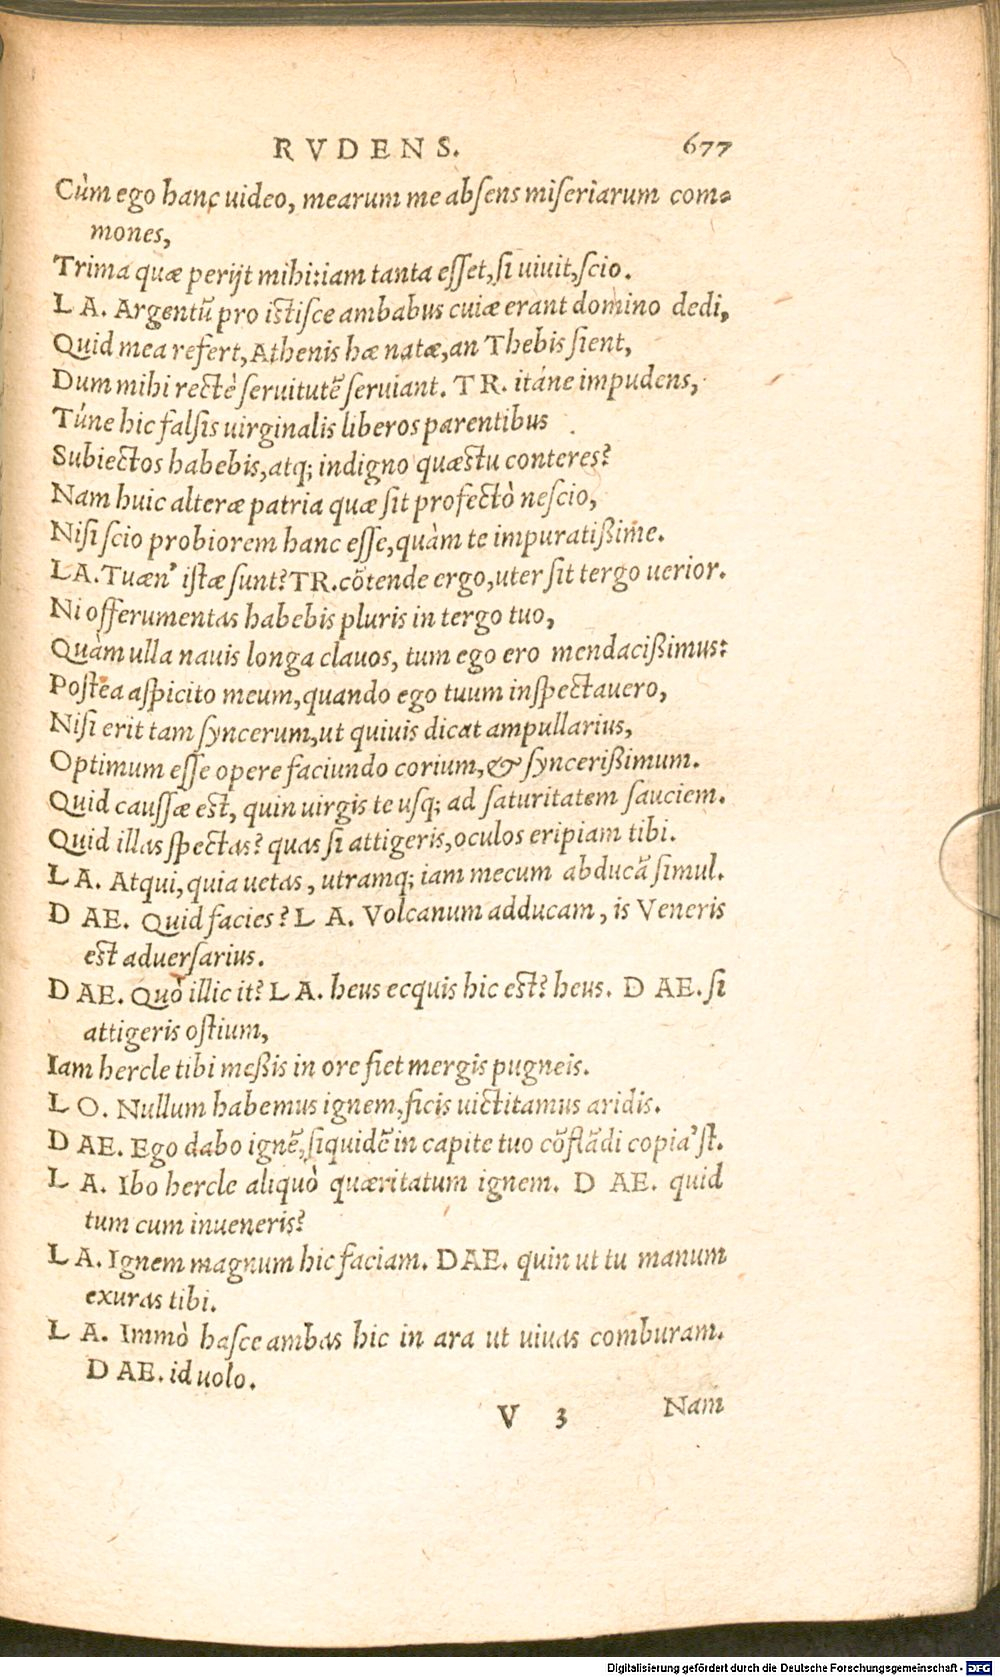 RVDENS. 677
Cùm ego hanc uideo, mearum me absens miseriarum com=
mones,
Trima quæ perijt mihi:iam tanta esset,si uiuit,scio.
LA. Argentũ pro istisce ambabus cuiæ erant domino dedi,
Quid mea refert,Athenis hæ natæ,an Thebis sient,
Dum mihi rectè seruitutẽ seruiant. TR. itáne impudens,
Túne hic falsis uirginalis liberos parentibus
Subiectos habebis,atq; indigno quæstu conteres?
Nam huic alteræ patria quæ sit profectò nescio,
Nisi scio probiorem hanc esse,quàm te impuratißime.
LA. Tuæn' istæ sunt? TR.cõtende ergo,uter sit tergo uerior.
Ni offerumentas habebis pluris in tergo tuo,
Quàm ulla nauis longa clauos, tum ego ero mendacißimus:
Postea aspicito meum,quando ego tuum inspectauero,
Nisi erit tam syncerum,ut quiuis dicat ampullarius,
Optimum esse opere faciundo corium,& syncerißimum.
Quid caussæ est, quin uirgis te usq; ad saturitatem sauciem.
Quid illas spectas? quas si attigeris,oculos eripiam tibi.
LA. Atqui,quia uetas, utramq; iam mecum abducã simul.
DAE. Quid facies? LA. Volcanum adducam, is Veneris
est aduersarius.
DAE. Quò illic it? LA. heus ecquis hic est? heus. DAE. si
attigeris ostium,
Iam hercle tibi meßis in ore fiet mergis pugneis.
LO. Nullum habemus ignem,ficis uictitamus aridis.
DAE. Ego dabo ignẽ,siquidẽ in capite tuo cõflãdi copia'st.
LA. Ibo hercle aliquò quæritatum ignem. DAE. quid
tum cum inueneris?
LA. Ignem magnum hic faciam. DAE. quin ut tu manum
exuras tibi.
LA. Immò hasce ambas hic in ara ut uiuas comburam.
DAE. id uolo.
V 3 Nam
Digitalisierung gefördert durch die Deutsche Forschungsgemeinschaft - DFG